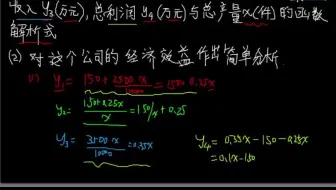 收入y₃(万元),总利润y₄(万元)与总产量x(件)的函数
解析式
(2) 对这个公司的经济效益作出简单分析.
(1) y₁ = 150 + 2500·x/10000 = 150+0.25x
y₂ = 150+0.25x/x = 150/x + 0.25
y₃ = 3500·x/10000 = 0.35x
y₄ = 0.35x-150-0.25x
= 0.1x-150